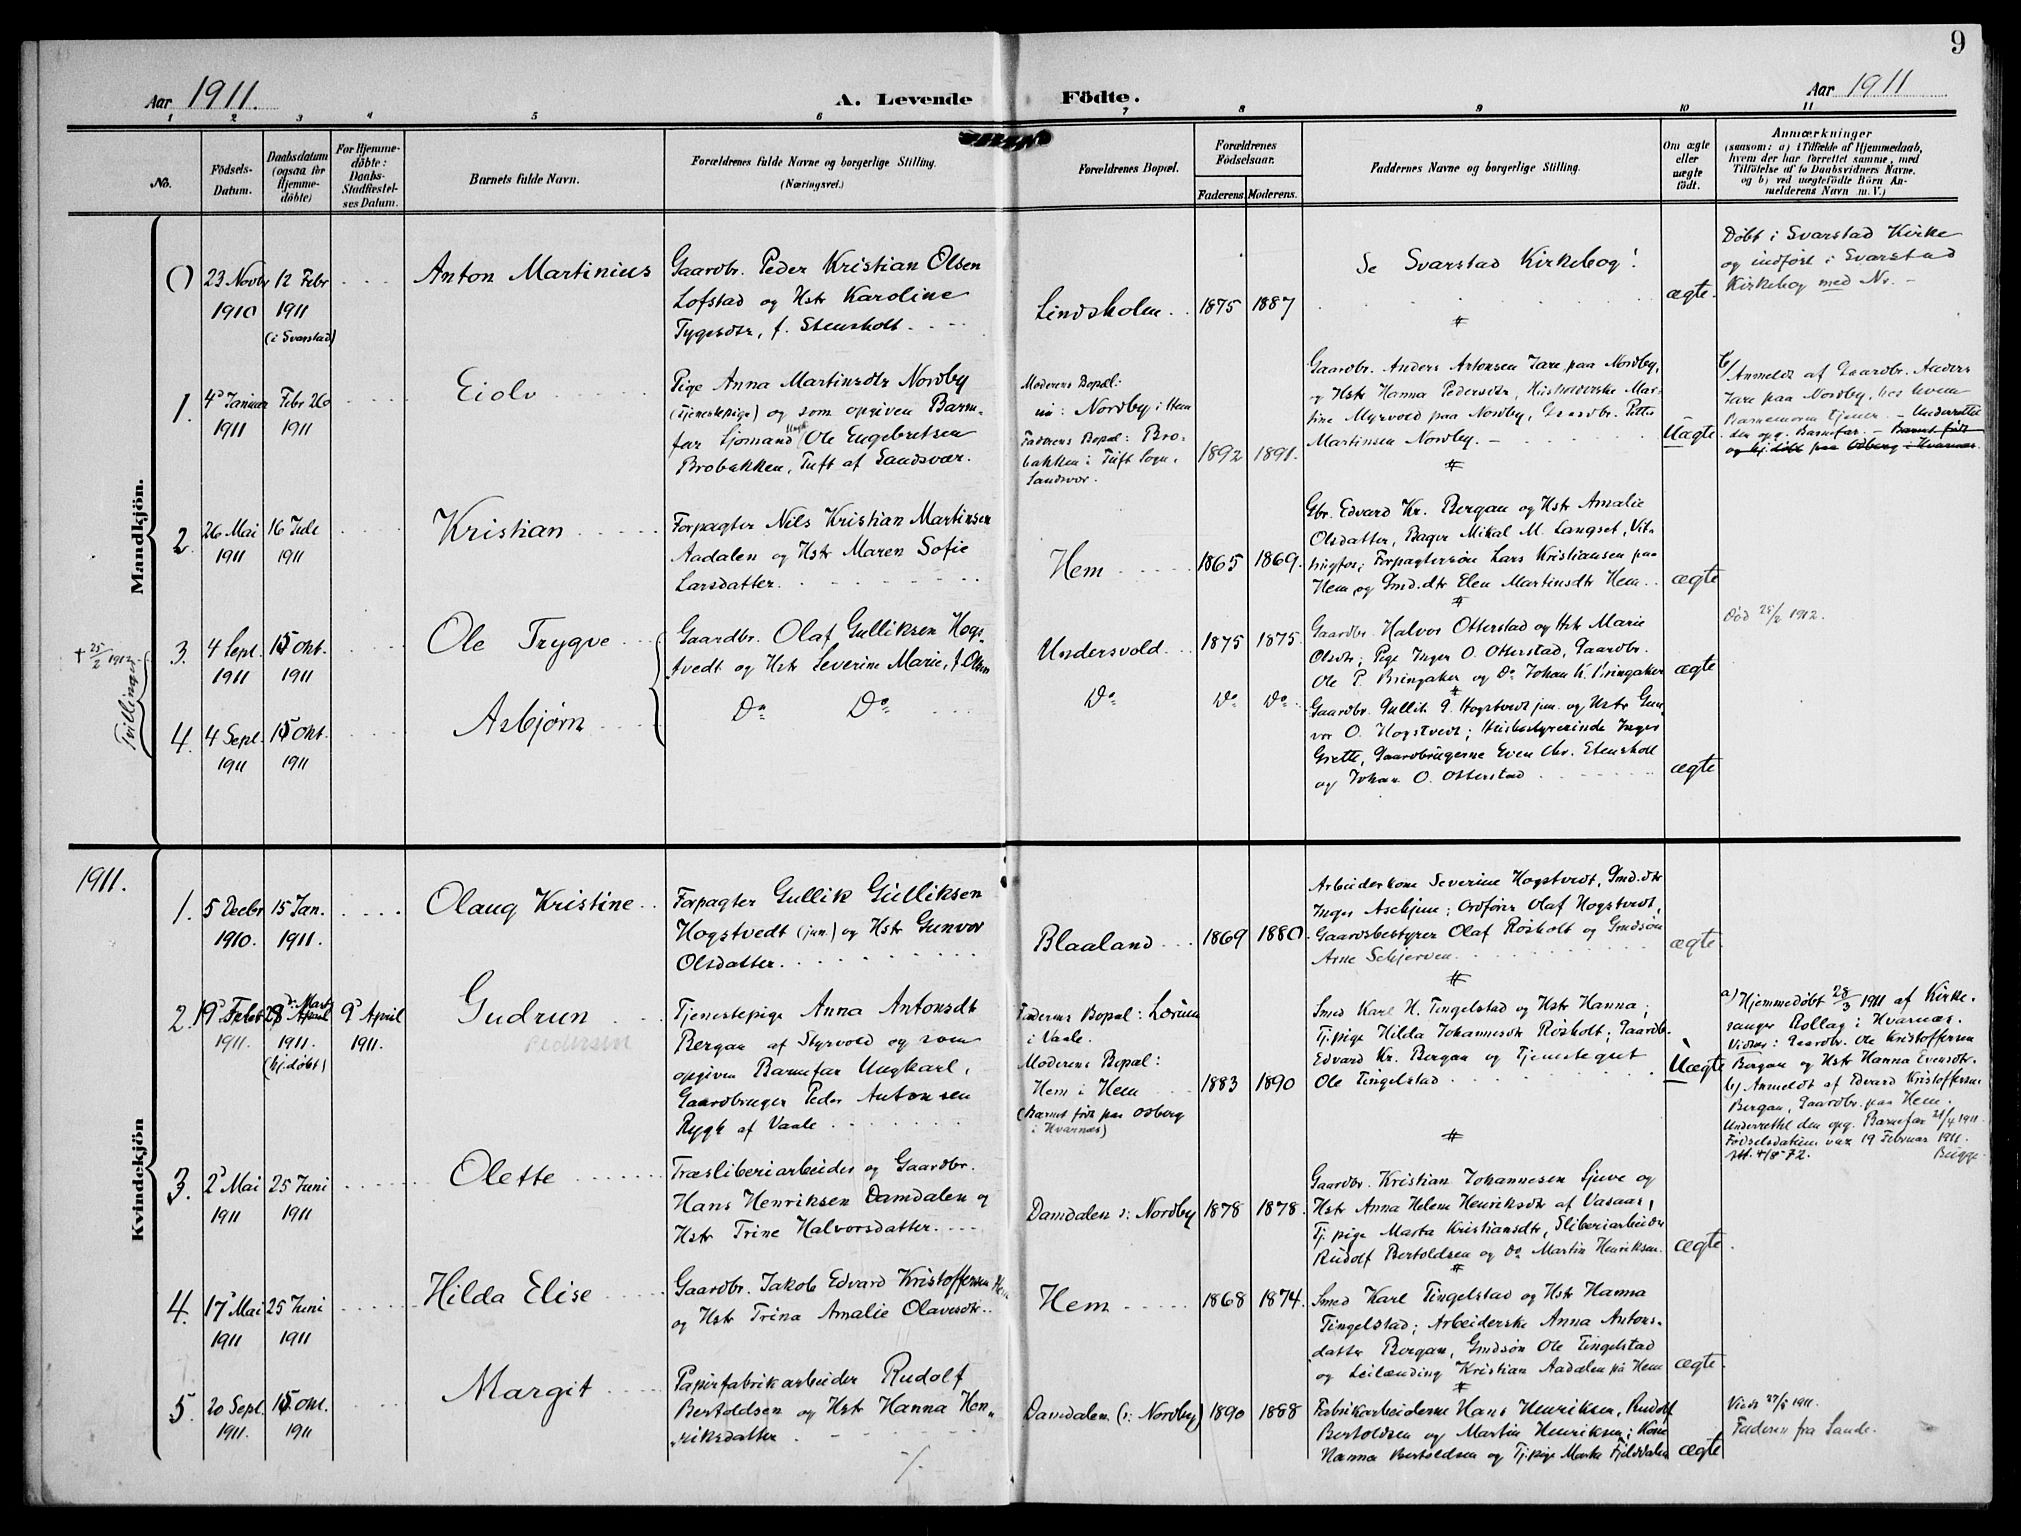 9
Aar 1911. A. Levende Födte. Aar 1911
1 2 3 4 5 6 7 8 9 10 11
No.
Födsels-
Datum.
Daabsdatum
(ogsaa for
Hjemme-
döbte)
For Hjemme-
döbte:
Daabs-
Stadfæstel-
ses Datum.
Barnets fulde Navn.
Forældrenes fulde Navne og borgerlige Stilling.
(Næringsvei.)
Forældrenes Bopæl.
Forældrenes
Födselsaar.
Faderens. Moderens.
Faddernes Navne og borgerlige Stilling.
Om ægte
eller
uægte
födt.
Anmærkninger
(saasom: a) i Tilfælde af Hjemmedaab,
hvem der har forrettet samme, med
Tilföielse af to Daabsvidners Navne,
og b) ved uægtefödte Börn An-
melderens Navn m. V.)
Mandkjön.
() 23 Novbr
1910
12 Febr
1911
(i Svarstad)
Anton Martinius
Gaardbr. Peder Kristian Olsen
Lofstad og Hstr Karoline
Tygesdtr, f. Stensholt.
Lindsholm
1875 1887
Se Svarstad Kirkebog!
ægte.
Døbt i Svarstad Kirke
og indført i Svarstad
Kirkebog med Nr. -
1. 4de Januar
1911
Febr 26
1911
Eiolv
Pige Anna Martinsdtr Nordby
(Tjenestepige) og som opgiven Barne-
far Sjømand Ungk. Ole Engebretsen
Brobakken, Tuft af Sandsvær.
Moderens Bopæl:
Nordby i Hem
Faderens Bopæl: Bro-
bakken i Tuft Sogn,
Sandsvær.
1892 1891.
Gaardbr. Anders Antonsen Jare paa Nordby,
og Hstr Hanna Pedersdtr, Husholderske Mar-
tine Myrvold paa Nordby, Gaardbr. Petter
Martinsen Nordby.
Uægte
b/ Anmeldt af Gaardbr. Anders
Jare paa Nordby, hos hvem
Barnemoren tjener. - Underrettet
den opg. Barnefar. - Barnet født
og hj.døbt paa Odberg i Hvarnæs.
2. 26 Mai
1911
16 Juli
1911
Kristian
Forpagter Nils Kristian Martinsen
Aadalen og Hstr Maren Sofie
Larsdatter.
Hem
1865 1869.
Gbr. Edvard Kr. Bergan og Hstr Amalie
Olsdatter, Bager Mikal M. Langset, Vit-
tingfos; Forpagtersøn Lars Kristiansen paa
Hem, og Gmd.dtr Elen Martinsdtr Hem.
ægte
† 25/2 1912
Tvillinger
3. 4 Sept.
1911
15 Okt.
1911
Ole Trygve
Gaardbr. Olaf Gulliksen Hogs-
tvedt og Hstr Severine Marie, f. Olsen
Undersvold
1875 1875
Gaardbr. Halvor Otterstad og Hstr Marie
Olsdtr; Pige Inger O. Otterstad, Gaardbr.
Ole P. Bringaker og Do Johan K. Bringaker
ægte
Død 25/2 1912.
4. 4 Sept.
1911
15 Okt.
1911
Asbjørn
Do Do
Do
Do Do
Gaardbr. Gullik G. Hogstvedt jun. og Hstr Gun-
vor O. Hogstvedt; Husbestyrerinde Inger
Grette, Gaardbrugerne Even Chr. Stensholt
og Johan O. Otterstad
ægte
1911.
Kvindekjön
1. 5 Decbr
1910.
15 Jan.
1911.
Olaug Kristine
Forpagter Gullik Gulliksen
Hogstvedt (jun.) og Hstr Gunvor
Olsdatter.
Blaaland
1869 1880.
Arbeiderkone Severine Hogstvedt, Gmd.dtr
Inger Asbjun; Ordfører Olaf Hogstvedt,
Gaardsbestyrer Olaf Røsholt og Gmdsøn
Arne Schjerven
ægte
2. 19de Febr
1911.
28de Marts April
1911.
(hj.døbt)
9de April
1911.
Gudrun
Pedersen
Tjenestepige Anna Antonsdt
Bergan af Styrvold og som
opgiven Barnefar Ungkarl,
Gaardbruger Peder Antonsen
Rygh af Vaale
Faderens Bopæl: Lørum
i Vaale.
Moderens Bopæl:
Hem i Hem
(Barnet født paa Odberg
i Hvarnæs)
1883 1890
Smed Karl H. Tingelstad og Hstr Hanna;
Tj.pige Hilda Johannesdtr Røsholt; Gaardbr.
Edvard Kr. Bergan og Tjenestegut
Ole Tingelstad
Uægte
a) Hjemmedøbt 28/3 1911 af Kirke-
sanger Rollag i Hvarnæs.
Vidner: Gaardbr. Ole Kristoffersen
Bergan og Hstr Hanna Evensdtr.
b) Anmeldt af Edvard Kristoffersen
Bergan, Gaardbr. paa Hem.
Underrettet den opg. Barnefar 21/4 1911.
Fødselsdatum var 19 Februar 1911.
Brigge
3. 2den Mai
1911
25 Juni
1911
Olette
Træsliberiarbeider og Gaardbr.
Hans Henriksen Damdalen og
Hstr Trine Halvorsdatter.
Damdalen s: Nordby
1878 1878.
Gaardbr. Kristian Johannesen Sjuve og
Hstr Anna Helene Henriksdtr af Vasaas,
Tj.pige Marta Kristiansdtr, Sliberiarbeider
Rudolf Bertoldsen og Do Martin Henriksen.
ægte
4. 17de Mai
1911
25 Juni
1911
Hilda Elise
Gaardbr. Jakob Edvard Kristoffersen Hem
og Hstr Trina Amalie Olavesdtr.
Hem
1868 1874.
Smed Karl Tingelstad og Hstr Hanna
Tingelstad; Arbeiderske Anna Antons-
datter Bergan, Gmdsøn Ole Tingelstad
og Leilænding Kristian Aadalen på Hem
ægte
5. 20 Sept.
1911.
15 Okt.
1911
Margit
Papirfabrikarbeider Rudolf
Bertoldsen og Hstr Hanna Hen-
riksdatter
Damdalen (s: Nordby)
1890 1888
Fabrikarbeiderne Hans Henriksen, Rudolf
Bertoldsen og Martin Henriksen; Kone
Hanna Bertoldsen og Tj.pige Marta Fjelddalen
ægte
Viede 27/5 1911.
Faderen fra Sande.